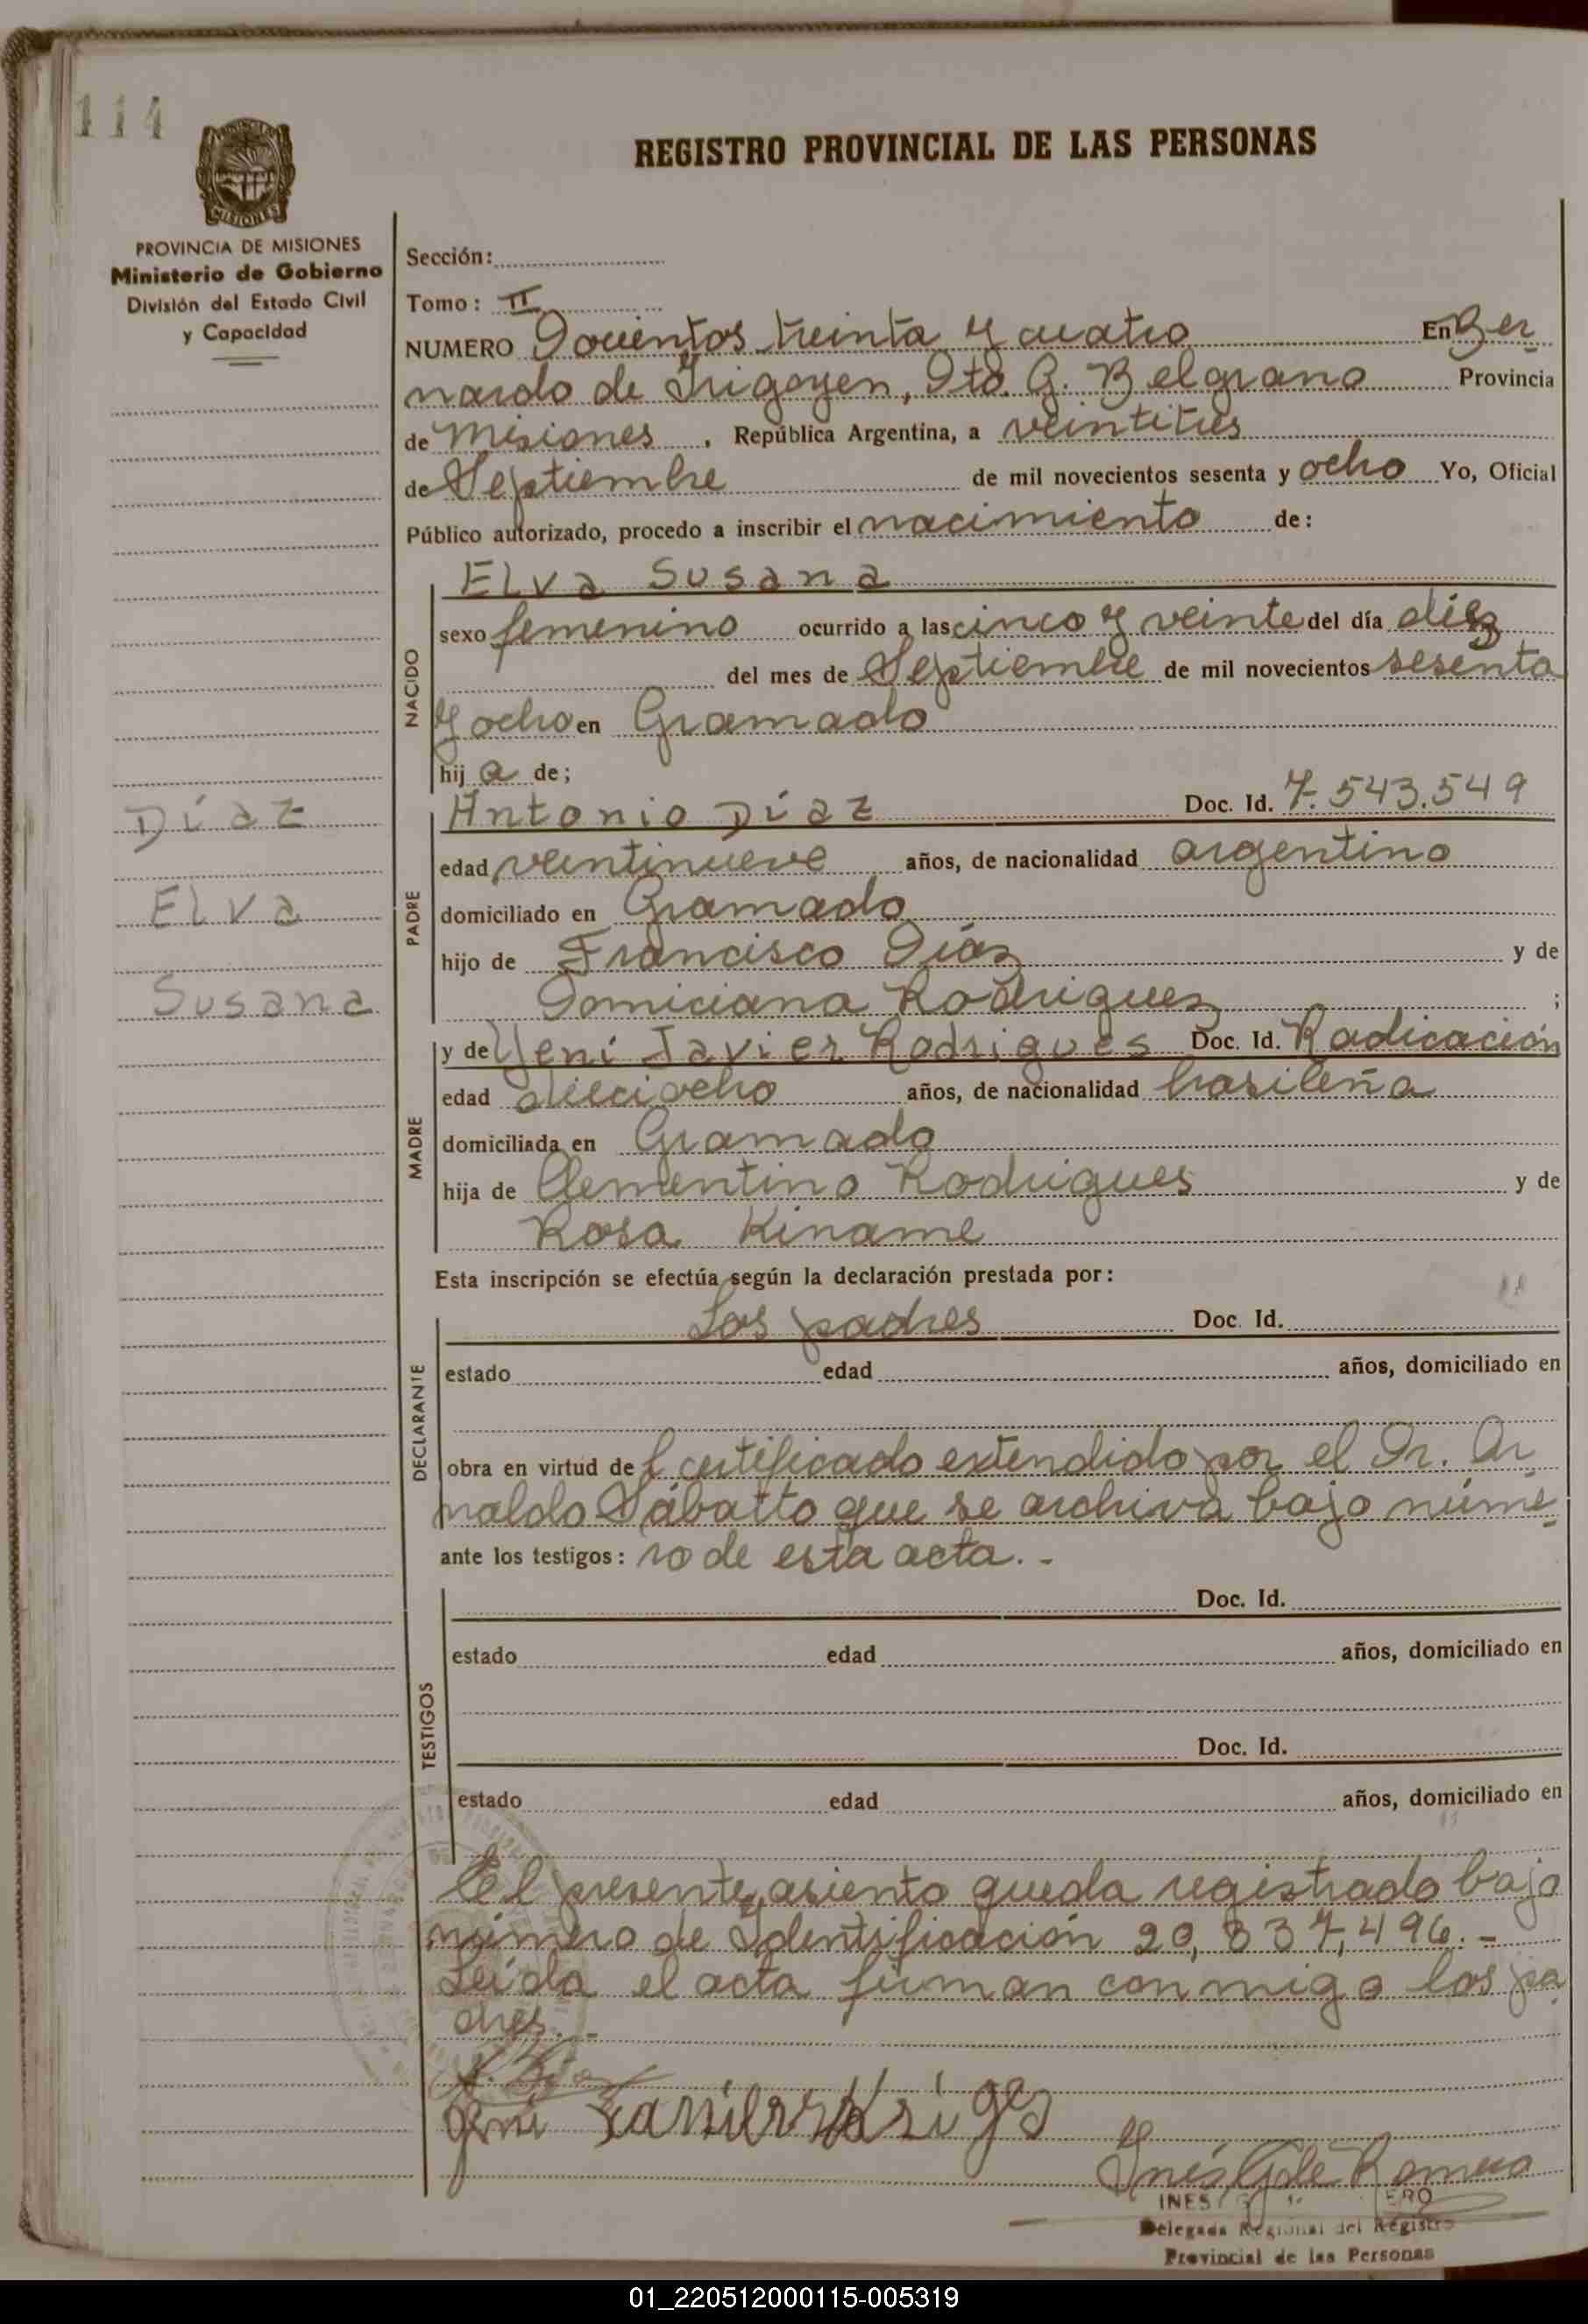 114
REGISTRO PROVINCIAL DE LAS PERSONAS
MISIONES
PROVINCIA DE MISIONES
Ministerio de Gobierno
División del Estado Civil
y Capacidad
Sección:
Tomo: II
NUMERO Docientos treinta y cuatro En Ber
nardo de Irigoyen, Dto. G. Belgrano Provincia
de Misiones, República Argentina, a veintitres
de Septiembre de mil novecientos sesenta y ocho Yo, Oficial
Público autorizado, procedo a inscribir el nacimiento de:
NACIDO
Elva Susana
sexo femenino ocurrido a las cinco y veinte del día diéz
del mes de Septiembre de mil novecientos sesenta
y ocho en Gramado
hij a de;
Díaz
Elva
Susana
PADRE
Antonio Díaz Doc. Id. 7.543.549
edad veintinueve años, de nacionalidad argentino
domiciliado en Gramado
hijo de Francisco Díaz y de
Domiciana Rodriguez ;
MADRE
y de Yeni Javier Rodrigues Doc. Id. Radicación
edad dieciocho años, de nacionalidad brasileña
domiciliada en Gramado
hija de Clementino Rodrigues y de
Rosa Kiname
Esta inscripción se efectúa según la declaración prestada por:
DECLARANTE
Los padres Doc. Id.
estado edad años, domiciliado en
obra en virtud del certificado extendido por el Dr. Ar
naldo Sábatto que se archiva bajo núme
ante los testigos: ro de esta acta.-
TESTIGOS
Doc. Id.
estado edad años, domiciliado en
Doc. Id.
estado edad años, domiciliado en
El presente asiento queda registrado bajo
número de Identificación 20,837,496.-
Leída el acta firman conmigo los pa
dres.-
Inés Romero
INES ERO
Delegada Regional del Registro
Provincial de las Personas
01_220512000115-005319